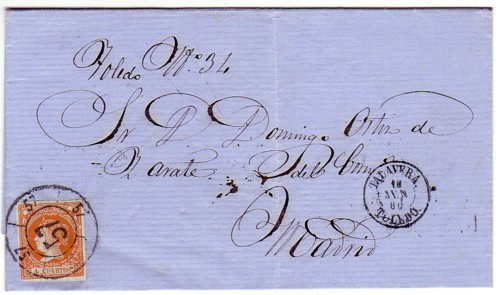 Toledo Nº 34
Sr D Domingo Ortiz de
Zarate del Com
Madrid
TALAVERA.
18
JUN
60
TOLEDO.
57
57
57
57
4 CUARTOS